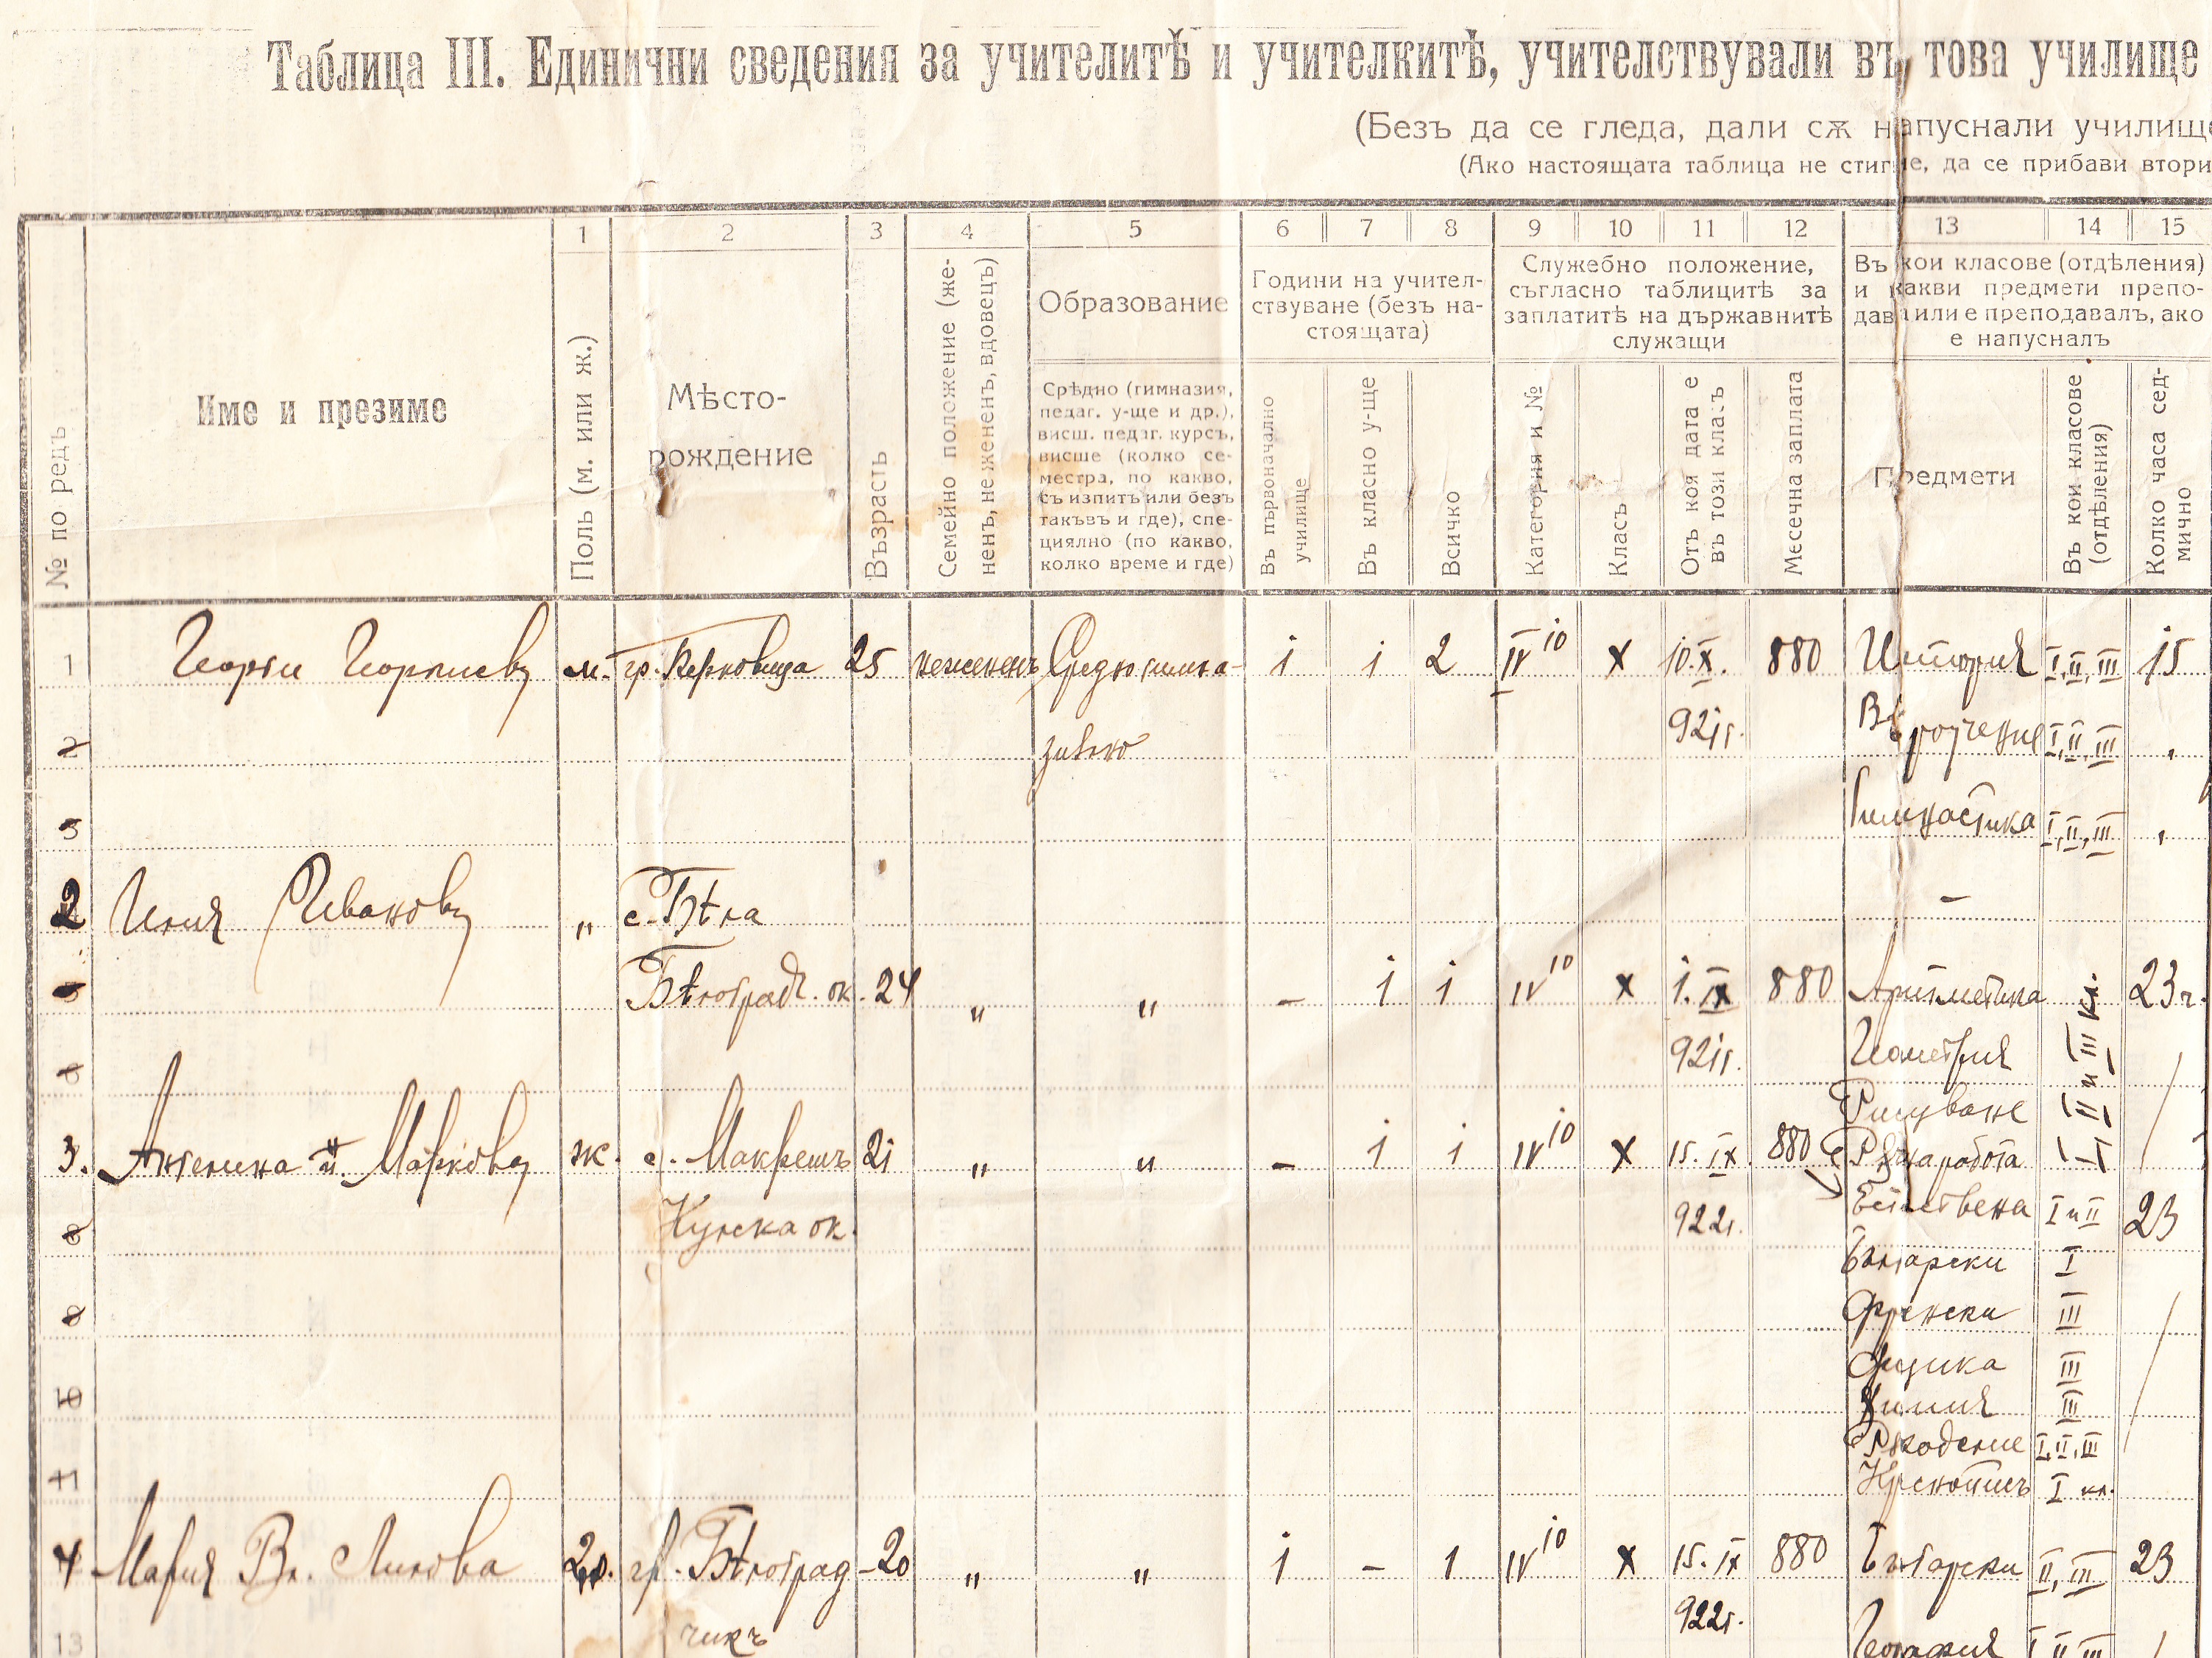 Таблица III. Единични сведения за учителитѣ и учителкитѣ, учителствували въ това училище
(Безъ да се гледа, дали сѫ напуснали училище
(Ако настоящата таблица не стигне, да се прибави втори
1 2 3 4 5 6 7 8 9 10 11 12 13 14 15
№ по редъ
Име и презиме
Полъ (м. или ж.)
Мѣсто-
рождение
Възрасть
Семейно положение (же-
ненъ, не жененъ, вдовецъ)
Образование
Срѣдно (гимназия,
педаг. у-ще и др.),
висш. педаг. курсъ,
висше (колко се-
местра, по какво,
съ изпитъ или безъ
такъвъ и где), спе-
циялно (по какво,
колко време и где)
Години на учител-
ствуване (безъ на-
стоящата)
Въ първоначално
училище
Въ класно у-ще
Всичко
Служебно положение,
съгласно таблицитѣ за
заплатитѣ на държавнитѣ
служащи
Категория и №
Класъ
Отъ коя дата е
въ този класъ
Месечна заплата
Въ кои класове (отдѣления)
и какви предмети препо-
дава или е преподавалъ, ако
е напусналъ
Предмети
Въ кои класове
(отдѣления)
Колко часа сед-
мично
1 Георги Георгиевъ м. гр. Берковица 25 неженень Средно гимна- 1 1 2 IV 10 X 10.X. 880 История I, II, III 15
2 зиално 921г. Вѣроучение I, II, III "
3 Гимнастика I, II, III "
2 Илия Ивановъ " с. Бѣла —
Бѣлоградч. ок. 24 " " – 1 1 IV 10 X 1.IX 880 Аритметика I II и III кл. 23 ч.
6 921г. Геометрия
Рисуване
3. Ангелина Маркова ж. с. Макрешъ 21 " " – 1 1 IV 10 X 15.IX 880 Рѫчна работа
8 Кулска ок. 922г. Естествена I и II 23
Български I
9 Френски III
Физика III
10 Химия III
Рѫкоделие I, II, III
11 Краснописъ I кл.
4 Мария Вл. Линова гр. Бѣлоград- 20 " " 1 – 1 IV 10 X 15.IX 880 Български II, III 23
13 чикъ 922г. География I II III